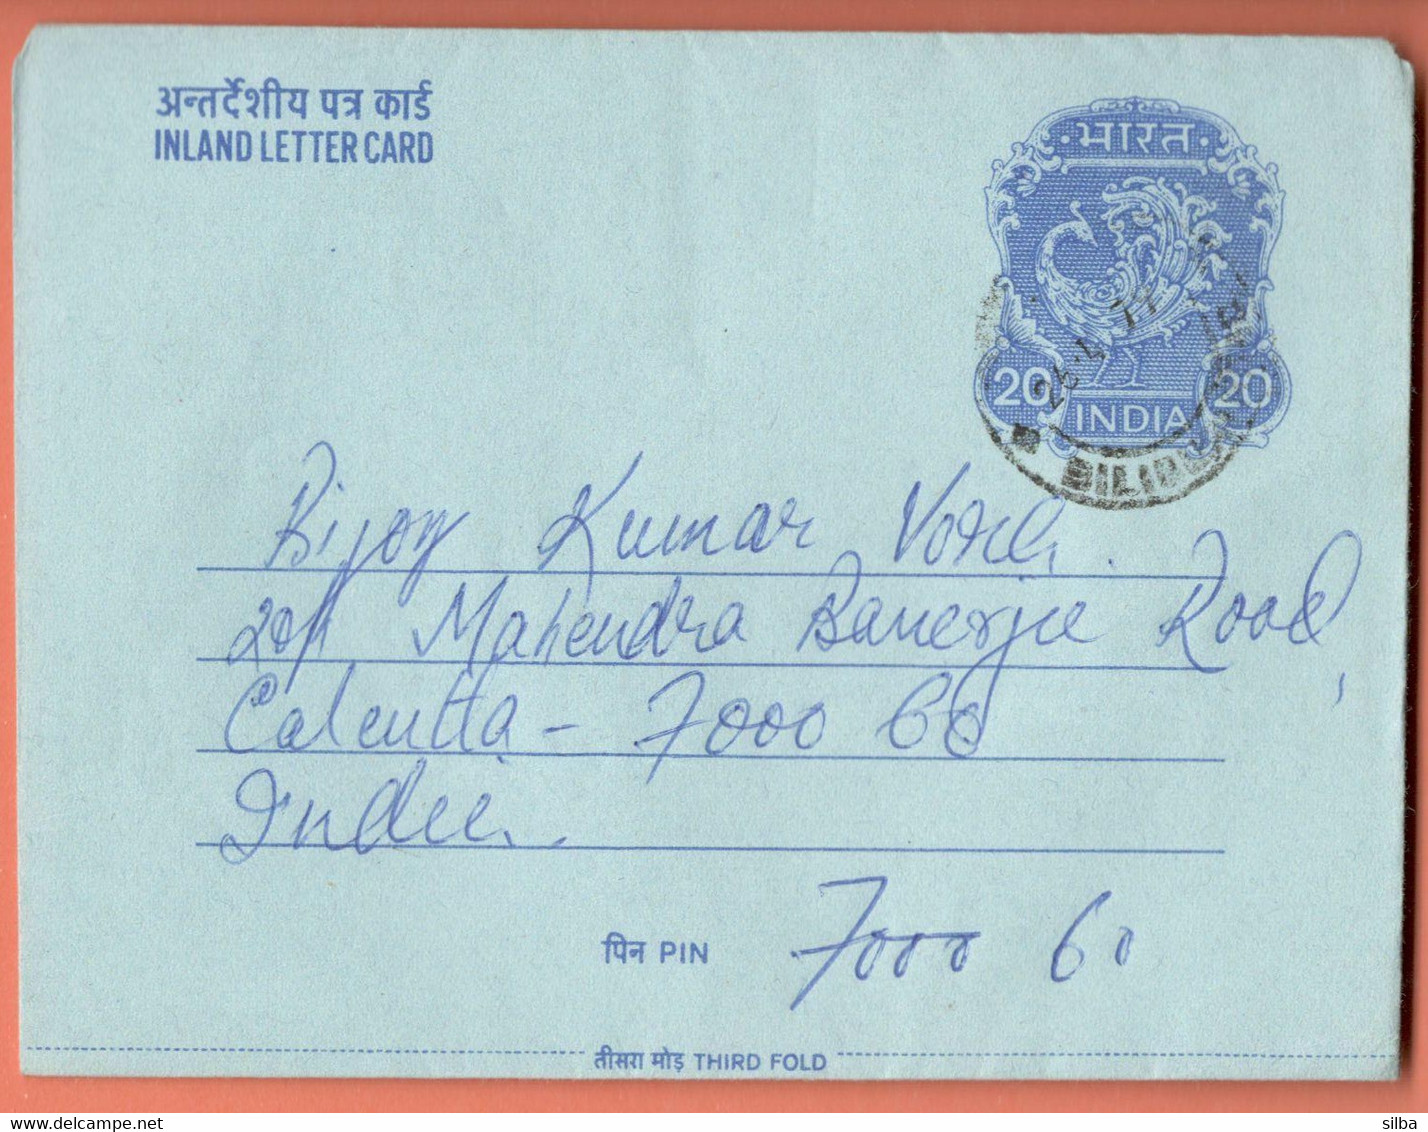 अन्तर्देशीय पत्र कार्ड
INLAND LETTER CARD
भारत
20 20
INDIA
Bijoy Kumar
Mahendra Banerjee Road,
Calcutta - 7000 60
India.
पिन PIN 7000 60
तीसरा मोड़ THIRD FOLD
silba